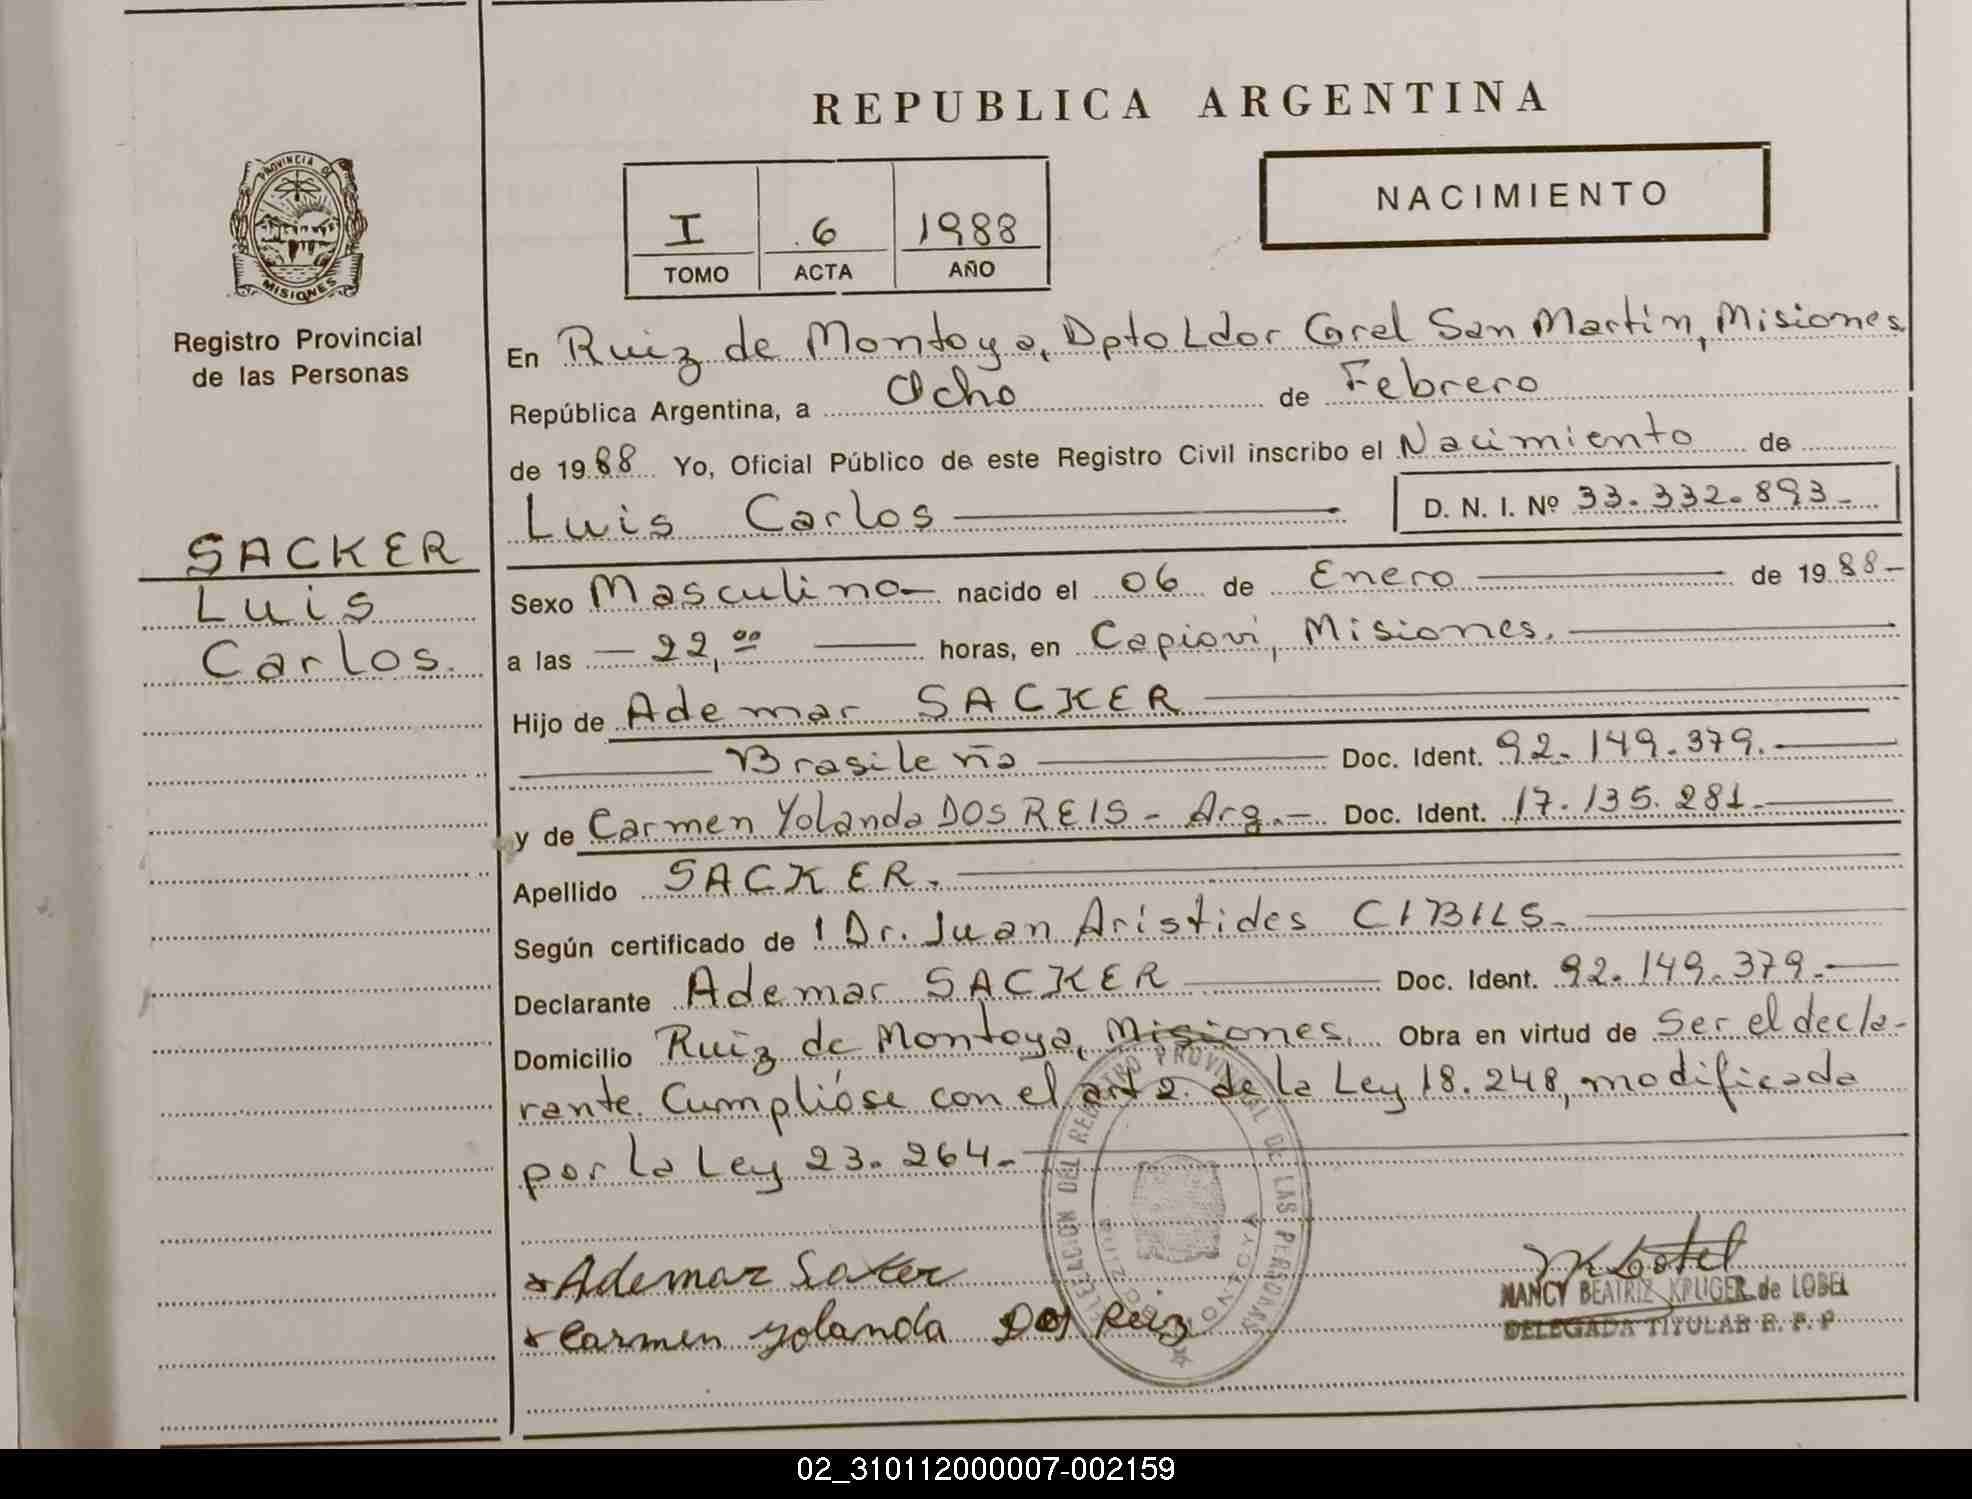 REPUBLICA ARGENTINA
PROVINCIA DE
MISIONES
Registro Provincial
de las Personas
I 6 1988
TOMO ACTA AÑO
NACIMIENTO
SACKER
Luis
Carlos.
En Ruiz de Montoya, Dpto Ldor Gral San Martín, Misiones
República Argentina, a Ocho de Febrero
de 1988 Yo, Oficial Público de este Registro Civil inscribo el Nacimiento de
Luis Carlos D. N. I. Nº 33.332.893-
Sexo Masculino- nacido el 06 de Enero de 1988-
a las - 22,00 horas, en Capiovi, Misiones.
Hijo de Ademar SACKER
Brasileña Doc. Ident. 92.149.379.-
y de Carmen Yolanda DOS REIS - Arg.- Doc. Ident. 17.135.281-
Apellido SACKER.
Según certificado de 1 Dr. Juan Arístides CIBILS-
Declarante Ademar SACKER Doc. Ident. 92.149.379.-
Domicilio Ruiz de Montoya, Misiones. Obra en virtud de Ser el decla-
rante. Cumplióse con el art 2. de la Ley 18.248, modificada
por la Ley 23.264-
DELEGACION DEL REGISTRO PROVINCIAL DE LAS PERSONAS
RUIZ DE MONTOYA
Ademar Saker
Carmen Yolanda Dos Reiz
NANCY BEATRIZ KRUGER de LOBEL
DELEGADA TITULAR R. P. P
02_310112000007-002159